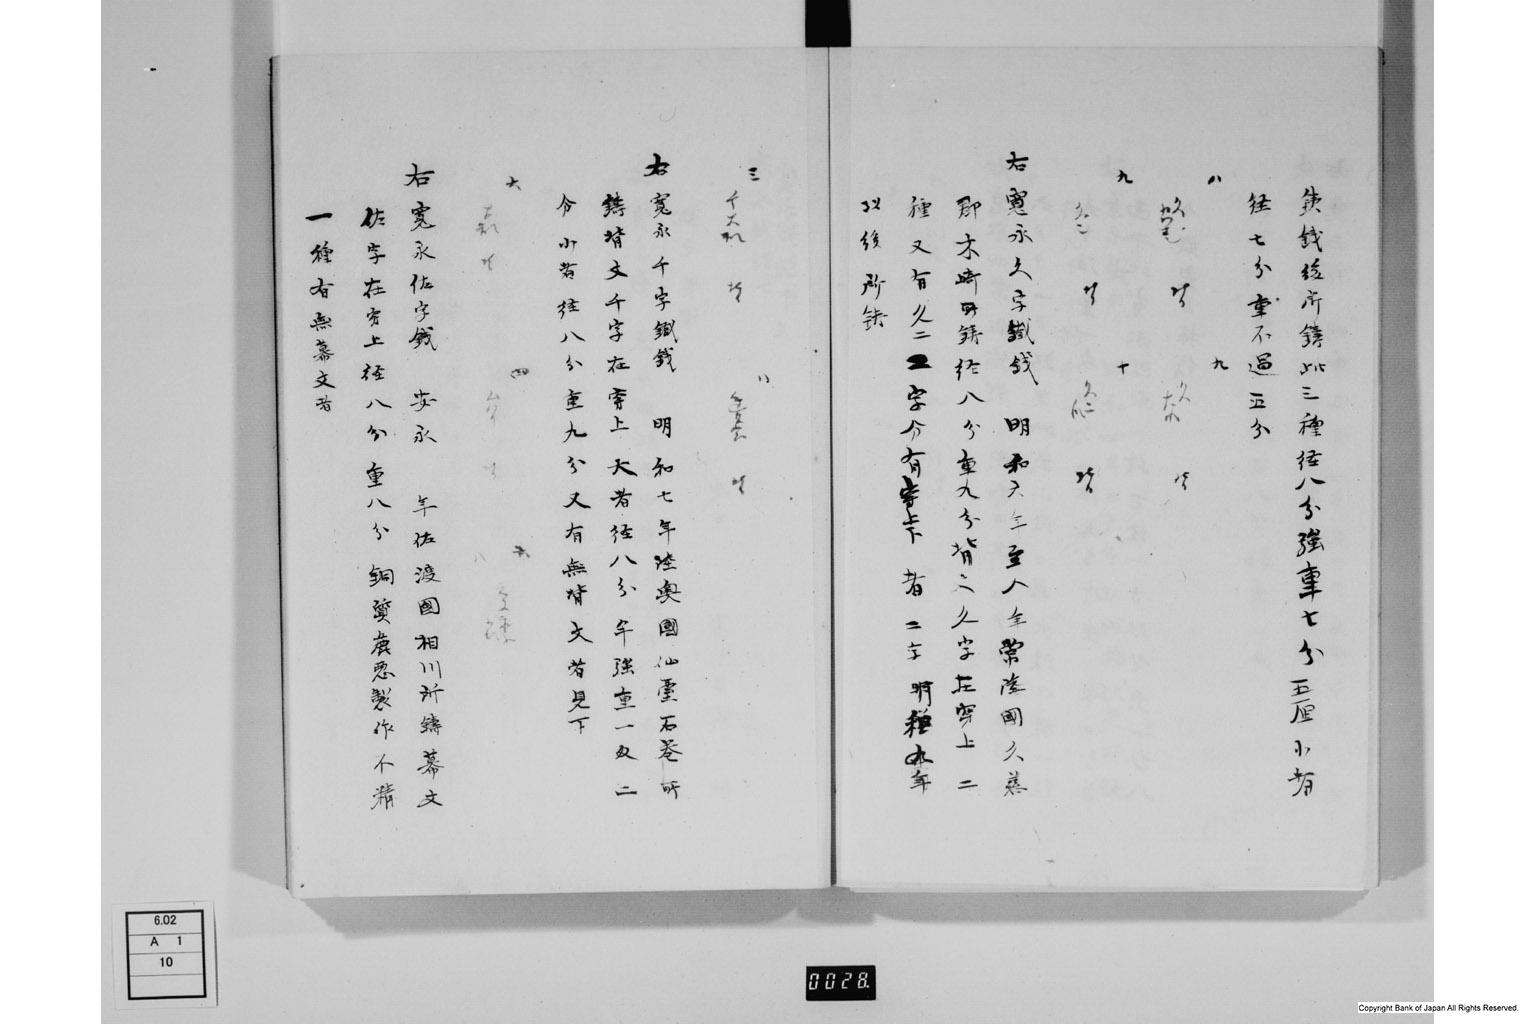 鉄銭後所鋳此三種径八分強重七分五厘小者
径七分重不過五分
八
九
九
十
右寛永久字鐵銭 明和六年至八年常陸國久慈
郡木崎所鋳径八分重九分背文久字在穿上二
種又有久二二字分有穿上下者二字明和九年
以後所鋳
三
千大和 背
背
右寛永千字鐵銭 明和七年陸奥國仙臺石巻所
鋳背文千字在穿上大者径八分半強重一匁二
分小者径八分重九分又有無背文者見下
四
右寛永佐字銭 安永 年佐渡國相川所鋳幕文
佐字在穿上径八分重八分銅質麁悪製作不精
一種有無幕文者
0028.
6.02
A 1
10
Copyright Bank of Japan All Rights Reserved.